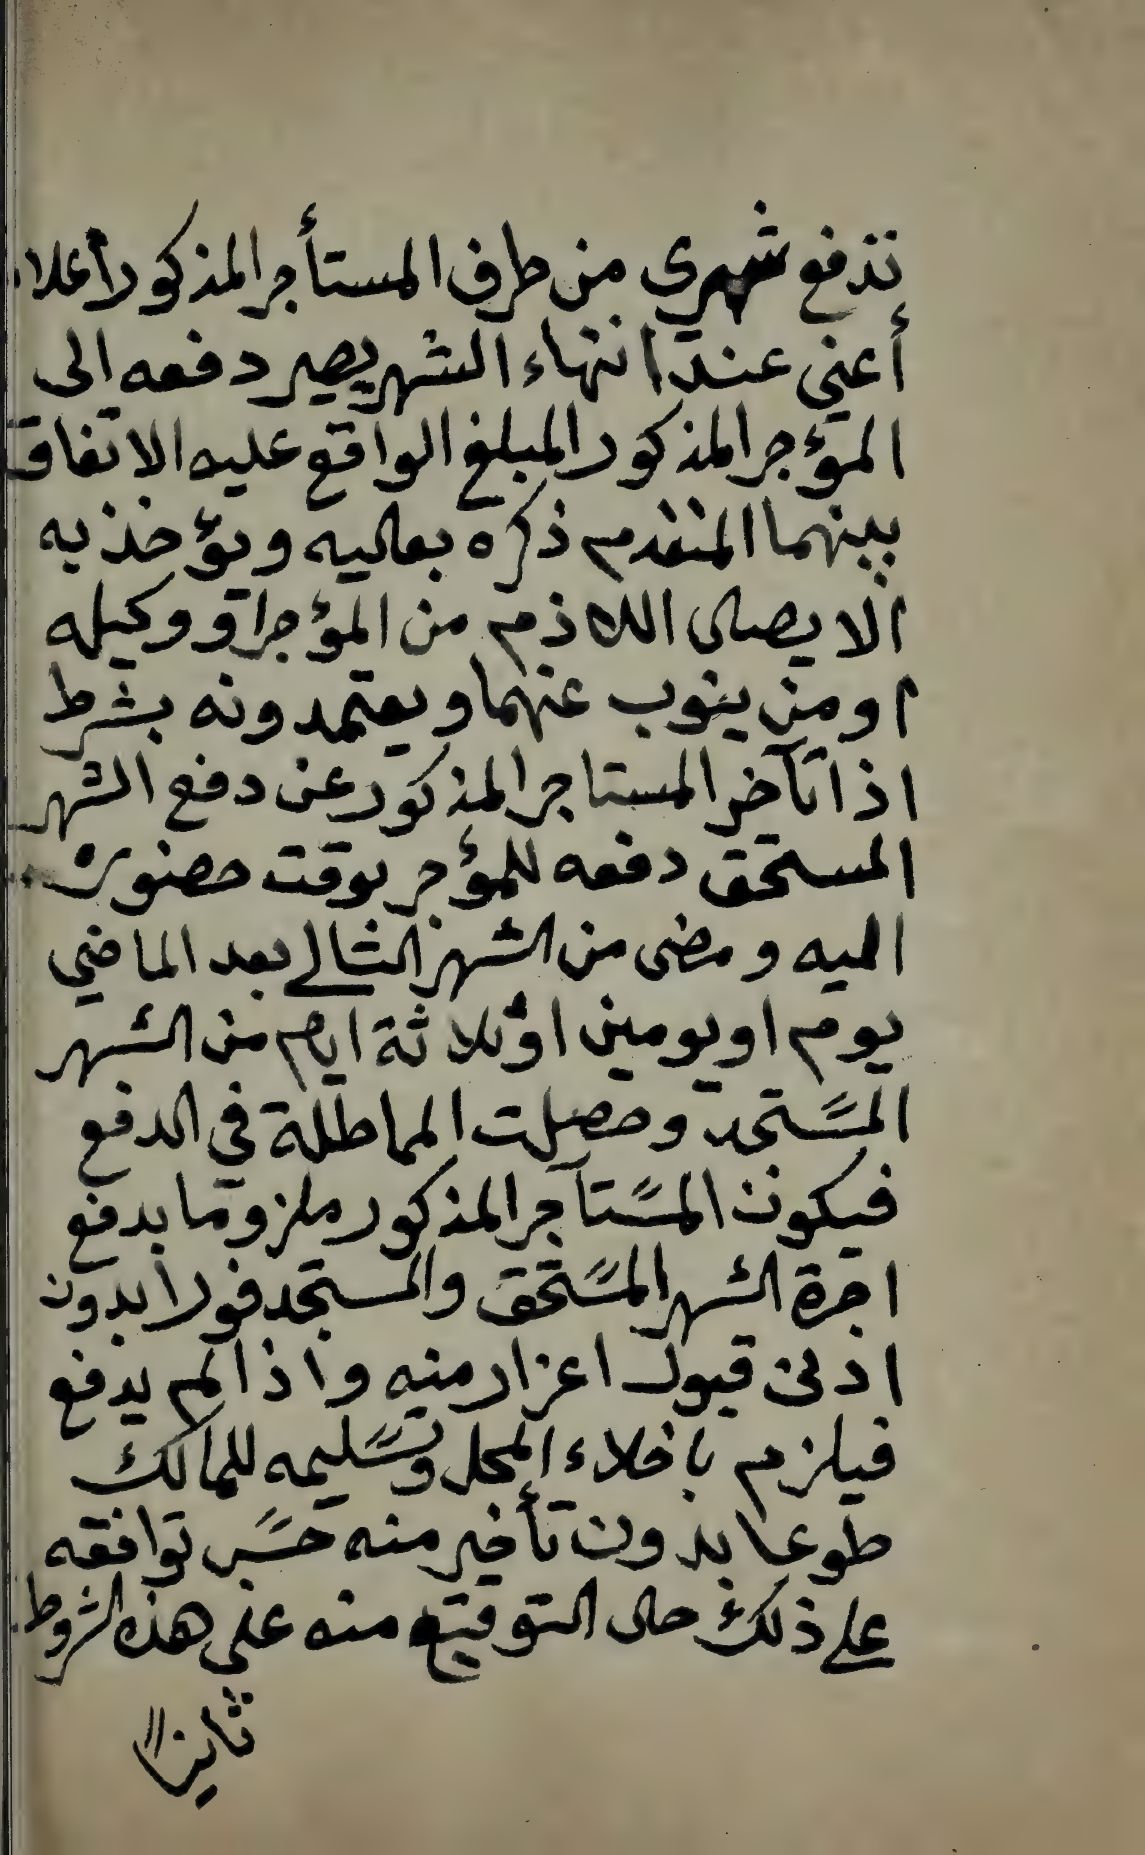 تدفع شهرى من طرف المستأجر المذكور أعلاه
أعني عند انتهاء الشهر يصير دفعه الى
المؤجر المذكور المبلغ الواقع عليه الاتفاق
بينهما المتقدم ذكره بعاليه ويؤخذ به
الايصال اللاذم من المؤجر او وكيله
او من ينوب عنهما ويعتمدونه بشرط
اذا تآخر المستاجر المذكور عن دفع الشهر
المستحق دفعه للمؤجر بوقت حضوره
اليه ومضى من الشهر التالي بعد الماضي
يوم او يومين او ثلاثة ايام من الشهر
المستجد وحصلت المماطلة في الدفع
فيكون المستآجر المذكور ملزوما بدفع
اجرة الشهر المستحق والمستجد فورا بدون
ادنى قبول اعزار منه واذا لم يدفع
فيلزم باخلاء المحل وتسليمه للمالك
طوعا بدون تأخير منه حسب توافقه
على ذلك حال التوقيع منه على هذه الشروط
ثانيا